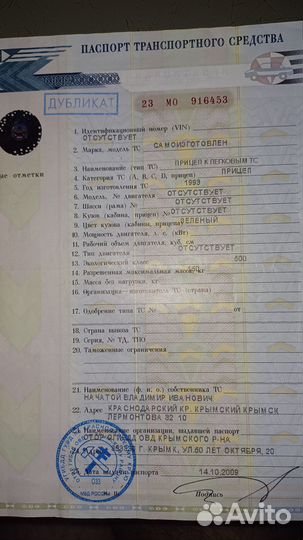 ПАСПОРТ ТРАНСПОРТНОГО СРЕДСТВА
ДУБЛИКАТ
23 МО 916453
1. Идентификационный номер (VIN) ОТСУТСТВУЕТ
2. Марка, модель ТС САМОИЗГОТОВЛЕН
3. Наименование (тип ТС) ПРИЦЕП К ЛЕГКОВЫМ ТС
4. Категория ТС (А, В, С, D, прицеп) ПРИЦЕП
5. Год изготовления ТС 1993
6. Модель, № двигателя ОТСУТСТВУЕТ
7. Шасси (рама) № ОТСУТСТВУЕТ
8. Кузов (кабина, прицеп) № ОТСУТСТВУЕТ
9. Цвет кузова (кабины, прицепа) ЗЕЛЕНЫЙ
10. Мощность двигателя, л. с. (кВт)
11. Рабочий объем двигателя, куб. см
12. Тип двигателя ОТСУТСТВУЕТ
13. Экологический класс
500
14. Разрешенная максимальная масса, кг
15. Масса без нагрузки, кг
16. Организация-изготовитель ТС (страна)
17. Одобрение типа ТС № от
18. Страна вывоза ТС
19. Серия, № ТД, ТПО
20. Таможенные ограничения
ные отметки
21. Наименование (ф. и. о.) собственника ТС
НАЧАТОЙ ВЛАДИМИР ИВАНОВИЧ
22. Адрес КРАСНОДАРСКИЙ КР. КРЫМСКИЙ КРЫМСК
ЛЕРМОНТОВА 32 10
23. Наименование организации, выдавшей паспорт
ОГИБДД ОВД КРЫМСКОГО Р-НА
24. Адрес Г. КРЫМСК, УЛ. 60 ЛЕТ ОКТЯБРЯ, 20
паспорта 14.10.2009
Подпись
МВД РОССИИ
Avito